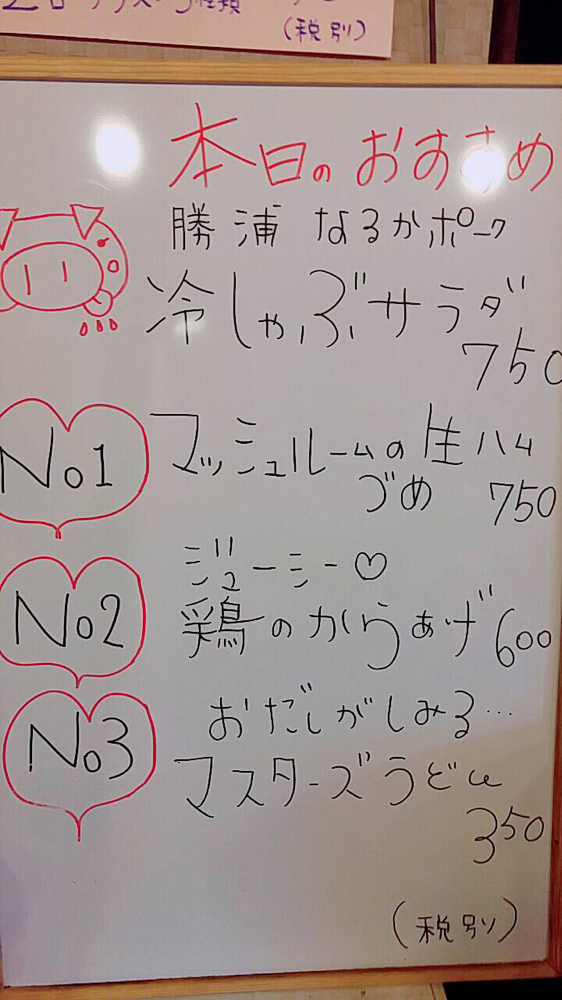 (税別)
本日のおすすめ
勝浦 なるかポーク
冷しゃぶサラダ
750
No1
マッシュルームの生ハム
づめ 750
ジューシー♡
No2
鶏のからあげ 600
おだしがしみる…
No3
マスターズうどん
350
(税別)